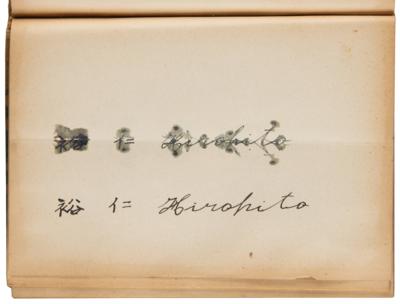 裕 仁 Hirohito
裕 仁 Hirohito